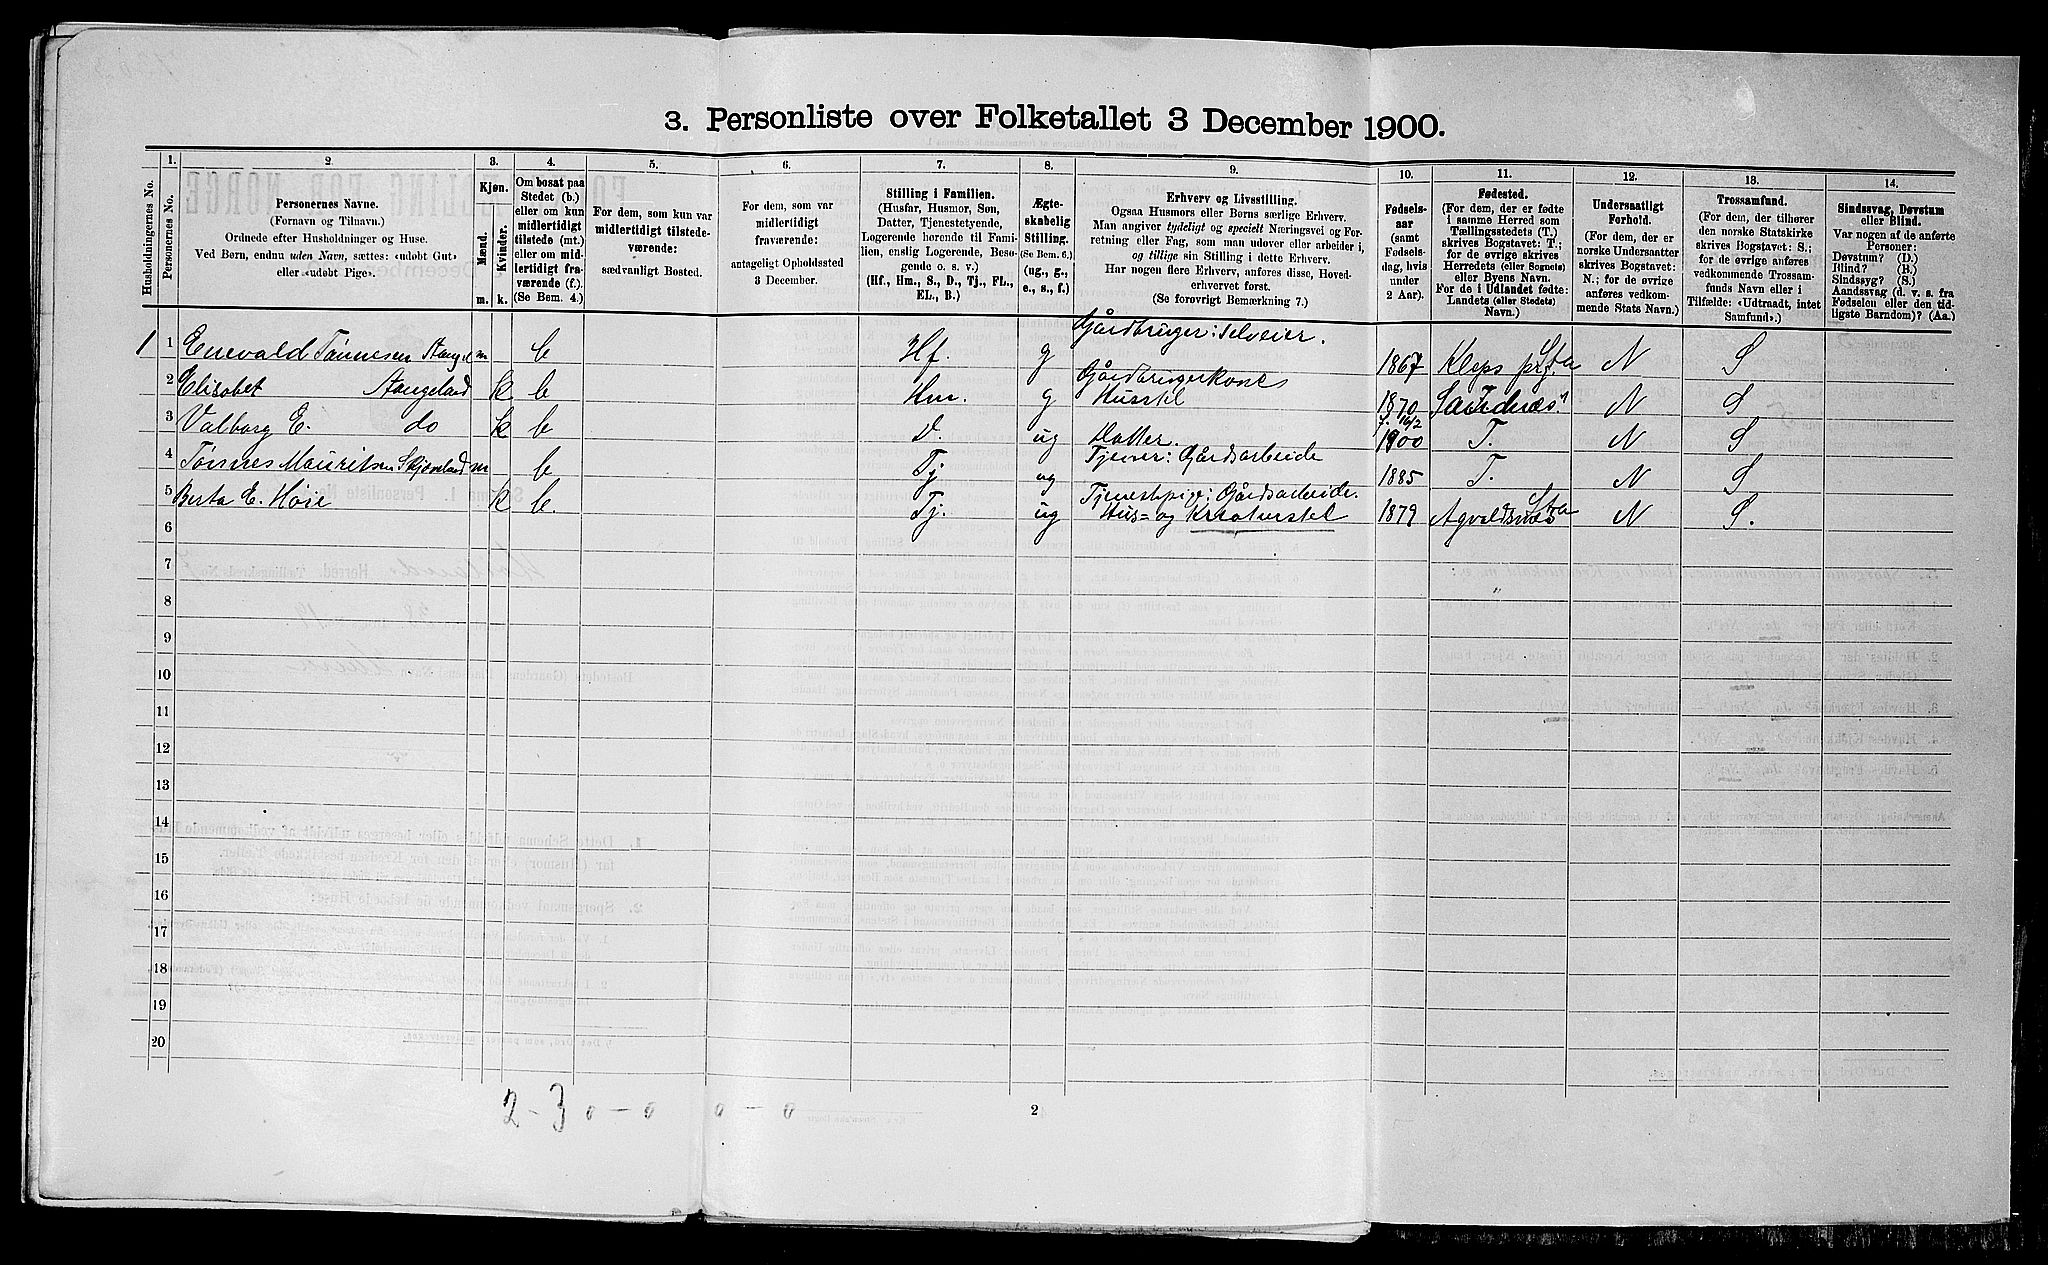 3. Personliste over Folketallet 3 December 1900.
Husholdningernes No.
1. Personernes No.
2. Personernes Navne.
(Fornavn og Tilnavn.)
Ordnede efter Husholdninger og Huse.
Ved Børn, endnu uden Navn, sættes: «udøbt Gut»
eller «udøbt Pige».
3. Kjøn.
Mænd. Kvinder.
m. k.
4.
Om bosat paa
Stedet (b.)
eller om kun
midlertidigt
tilstede (mt.)
eller om mid-
lertidigt fra-
værende (f.).
(Se Bem. 4.)
5.
For dem, som kun var
midlertidigt tilstede-
værende:
sædvanligt Bosted.
6.
For dem, som var
midlertidigt
fraværende:
antageligt Opholdssted
3 December.
7.
Stilling i Familien.
(Husfar, Husmor, Søn,
Datter, Tjenestetyende,
Logerende hørende til Fami-
lien, enslig Logerende, Besø-
gende o. s. v.)
(Hf., Hm., S., D., Tj., FL.,
EL., B.)
8.
Ægte-
skabelig
Stilling.
(Se Bem. 6.)
(ug., g.,
e., s., f.)
9.
Erhverv og Livsstilling.
Ogsaa Husmors eller Børns særlige Erhverv.
Man angiver tydeligt og specielt Næringsvei og For-
retning eller Fag, som man udover eller arbeider i,
og tillige sin Stilling i dette Erhverv.
Har nogen flere Erhverv, anføres disse, Hoved-
erhvervet først.
(Se forøvrigt Bemærkning 7.)
10.
Fødsels-
aar
(samt
Fødsels-
dag, hvis
under
2 Aar).
11.
Fødested.
(For dem, der er fødte
i samme Herred som
Tællingsstedets (T.)
skrives Bogstavet: T.;
for de øvrige skrives
Herredets (eller Sognets)
eller Byens Navn.
For de i Udlandet fødte:
Landets (eller Stedets)
Navn.)
12.
Undersaatligt
Forhold.
(For de norske Undersaatter
skrives Bogstavet:
N.; for de øvrige
anføres vedkom-
mende Stats Navn.)
13.
Trossamfund.
(For dem, der tilhører
den norske Statskirke
skrives Bogstavet: S.;
for de øvrige anføres
vedkommende Trossam-
funds Navn eller i
Tilfælde: «Udtraadt, intet
Samfund».)
14.
Sindssvag, Døvstum
eller Blind.
Var nogen af de anførte
Personer:
Døvstum? (D.)
Blind? (B.)
Sindssyg? (S.)
Aandssvag (d. v. s. fra
Fødselen eller den tid-
ligste Barndom)? (Aa.)
1 1 Enevald Tønnesen Stangel m b Hf. g Gårdbruger: selveier. 1867 Kleps prg. Sta N S
2 Elisabet Stangeland k b Hm. g Gårdbrugerkone Husstel 1870 Sandnæs N S
3 Valborg E. do k b D. ug Datter. 16/2 1900 T. N S
4 Tønnes Mauritsen Skjæveland m b Tj ug Tjener: Gårdsarbeide 1885 T. N S
5 Berta E. Høie k b. Tj. ug Tjenestepige: Gårdsarbeide. Hus- og Kreaturstel 1879 Agvaldsnæs Sta N S.
6
7
8
9
10
11
12
13
14
15
16
17
18
19
20
2-3 0-0 0-0
2